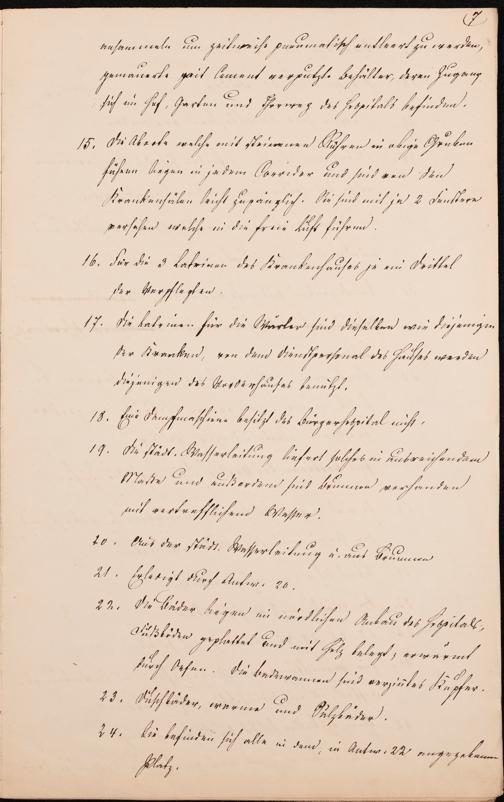 7
ansammeln um zeitweise pneumatisch entleert zu werden,
gemauerte mit Cement verputzte Behälter, deren Zugang
sich im Hof, Garten und Thorweg des Hospitals befinden.
15. Die Aborte welche mit steinernen Röhren in obige Gruben
führen liegen in jedem Corridor und sind von den
Krankensälen leicht zugänglich. Sie sind mit je 2 Fenstern
versehen welche in die freie Luft führen.
16. Für die 3 Latrinen des Krankenhauses je ein Drittel
der Verpflegten.
17. Die Latrinen für die Wärter sind dieselben wie diejenigen
der Kranken, von dem Dienstpersonal des Hauses werden
diejenigen des Vorderhauses benützt.
18. Eine Dampfmaschine besitzt das Bürgerhospital nicht.
19. Die städt. Wasserleitung liefert solches in ausreichendem
Maße und außerdem sind Brunnen vorhanden
mit vortrefflichem Wasser.
20. Aus der städt. Wasserleitung u. aus Brunnen
21. Erledigt durch Antw. 20.
22. Die Bäder liegen im nördlichen Anbau des Hospitals,
Fußböden geplattet und mit Holz belegt, erwärmt
durch Ofen. Die Badewannen sind verzinntes Kupfer.
23. Duschbäder, warme und Salzbäder.
24. Sie befinden sich alle in dem, in Antw. 22 angegebenen
Platz.